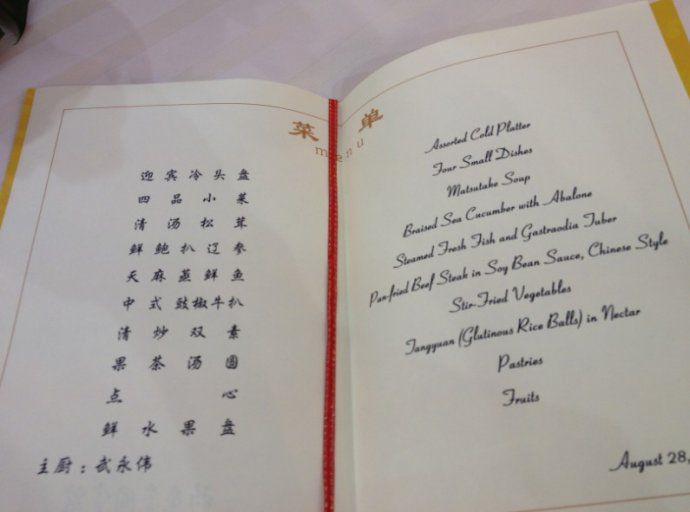 菜 单
menu
迎宾冷头盘
四品小菜
清汤松茸
鲜鲍扒辽参
天麻蒸鲜鱼
中式豉椒牛扒
清炒双素
果茶汤圆
点心
鲜水果盘
主厨：武永伟
Assorted Cold Platter
Four Small Dishes
Matsutake Soup
Braised Sea Cucumber with Abalone
Steamed Fresh Fish and Gastraodia Tuber
Pan-fried Beef Steak in Soy Bean Sauce, Chinese Style
Stir-Fried Vegetables
Tangyuan (Glutinous Rice Balls) in Nectar
Pastries
Fruits
August 28,